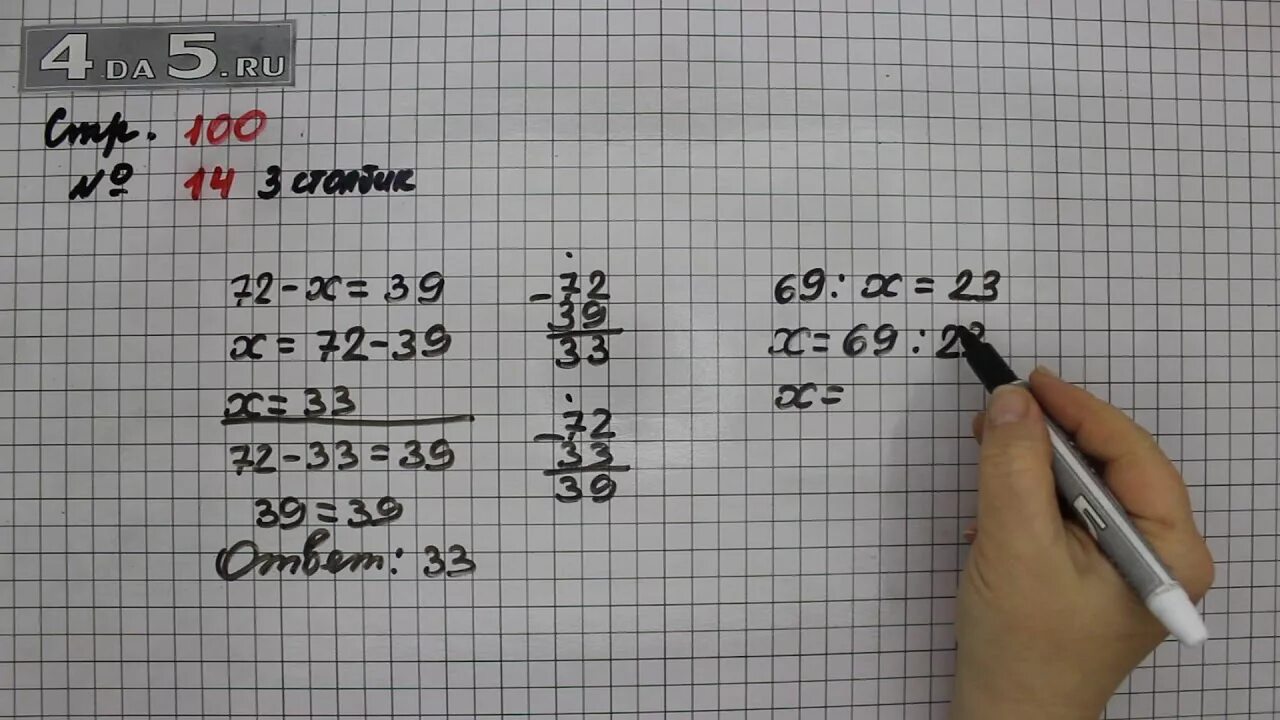 4 DA 5.RU
Стр. 100
№ 14 3 столбик
72 - x = 39
x = 72 - 39
x = 33
72 - 33 = 39
39 = 39
Ответ: 33
- 72
39
33
- 72
33
39
69 : x = 23
x = 69 : 23
x =